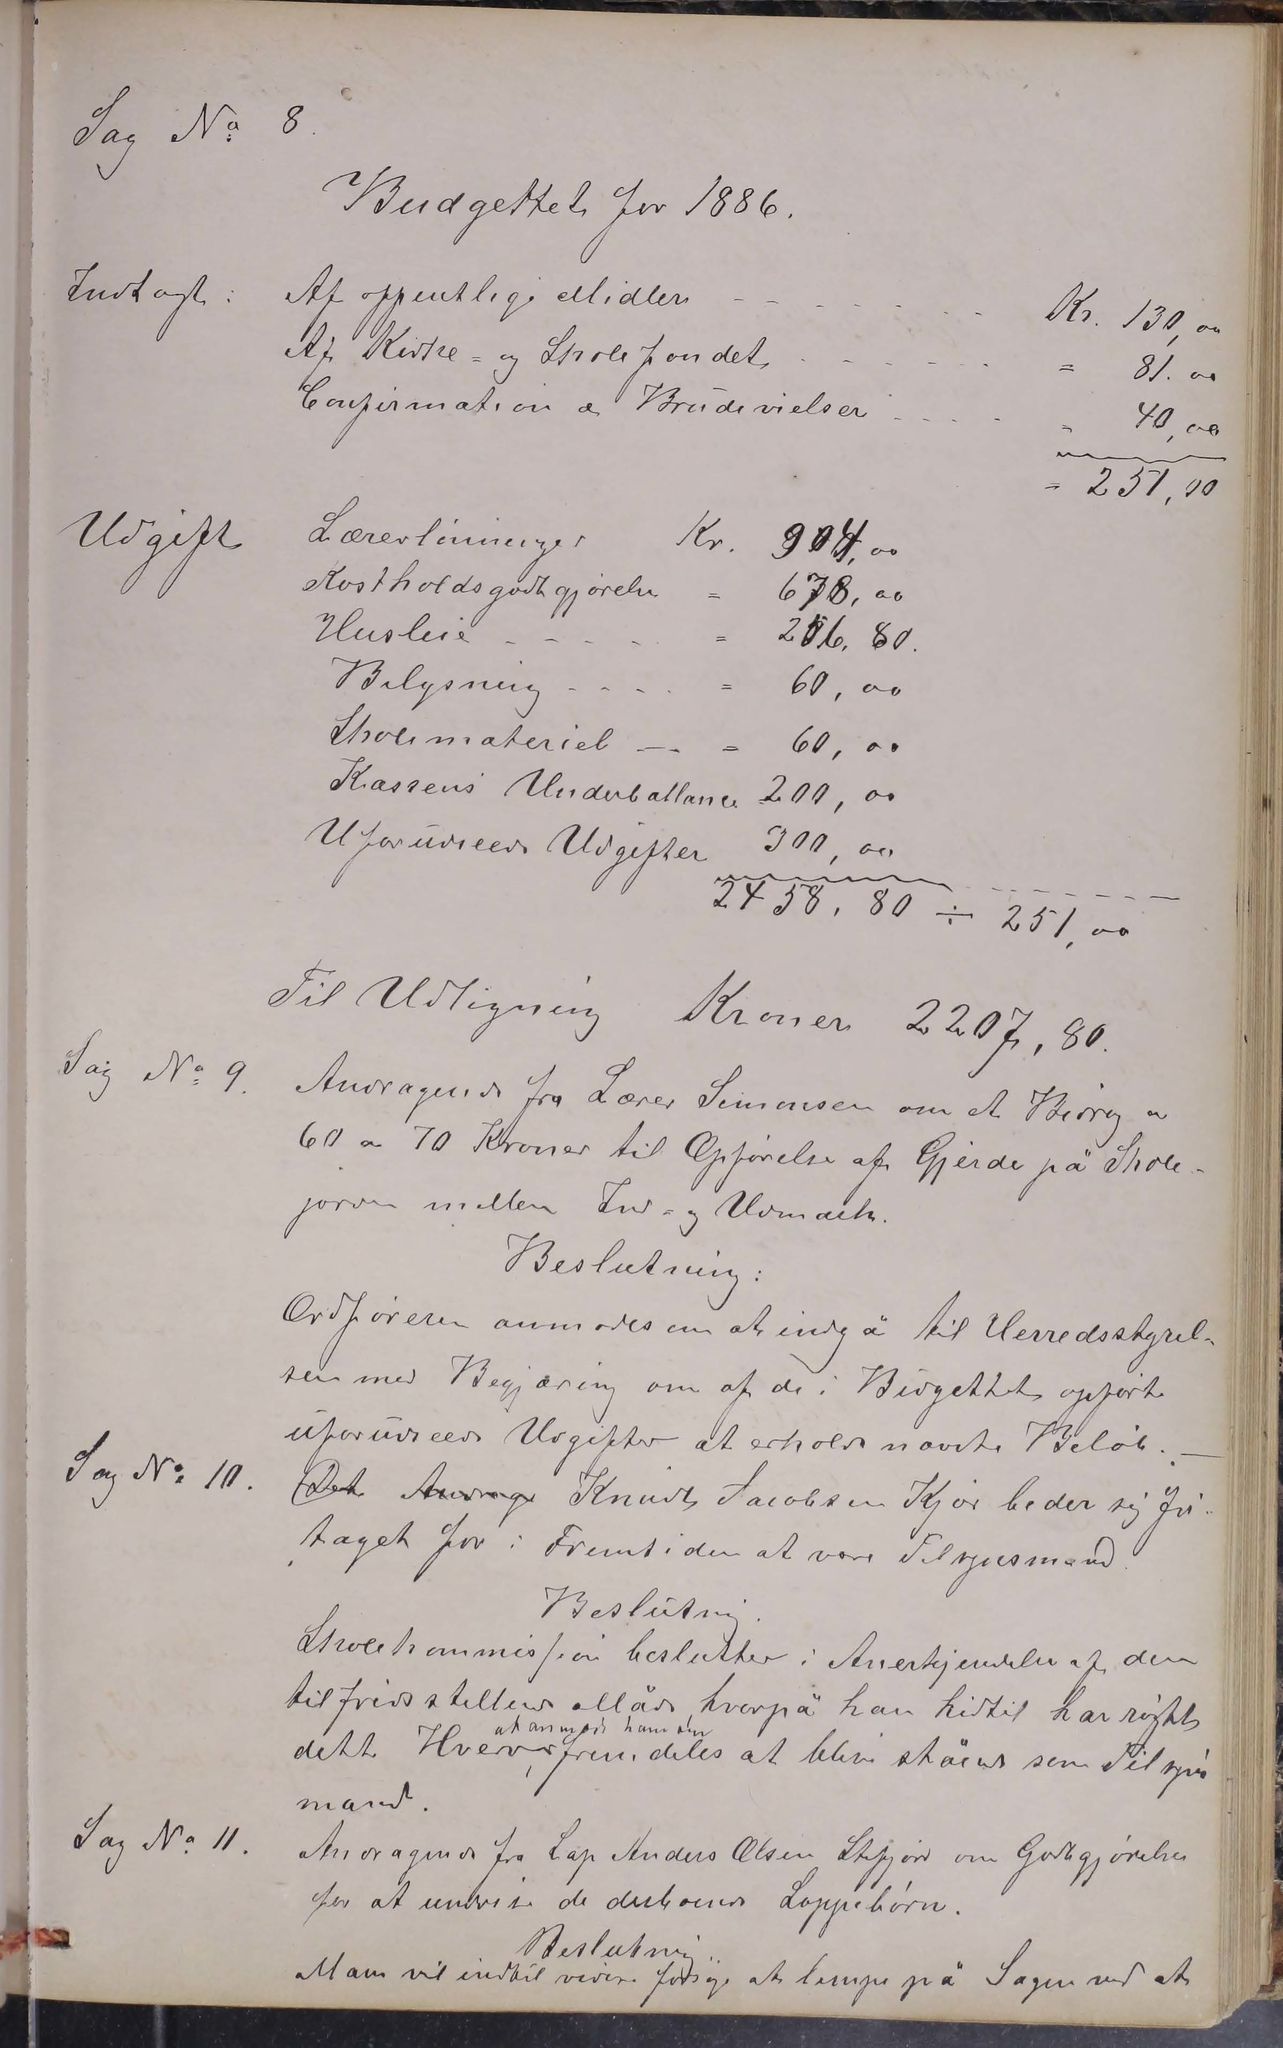 Sag No 8.
Budgettet for 1886.
Indtægt: Af offentlige Midler - - - - - - - Kr. 130,00
Af Kirke= og Skolefondet - - - - - - = 81.00
Confirmation & Brudevielser - - - - = 40,00
= 251,00
Udgift Lærerlønninger Kr. 904,00
Kostholdsgodtgjørelse = 678,00
Husleie - - - - - = 256,80.
Belysning - - - - = 60,00
Skolemateriel - - = 60,00
Kassens Underballance 200,00
Uforudseede Udgifter 300,00
2458,80 ÷ 251,00
Til Udligning Kroner 2207,80.
Sag No 9. Andragende fra Lærer Simonsen om et Bidrag a
60 a 70 Kroner til Opførelse af Gjerde på Skole-
jorden mellem Ind- og Udmark.
Beslutning:
Ordføreren anmodes om at indgå til Herredsstyrel-
sen med Begjæring om af de i Budgettet opførte
uforudseede Udgifter at erholde nævnte Beløb. —
Sag No 10. Det Andrage Knudt Jacobsen Kjør beder sig fri-
taget for i Fremtiden at være Tilsynsmand.
Beslutning.
Skolekommission beslutter i Anerkjendelse af den
tilfredsstillende Måde, hvorpå han hidtil har røgtet
at anmode ham om
dette Hverv fremdeles at blive stående som Tilsyns
mand.
Sag No 11. Andragende fra Lap Anders Olsen Stefjord om Godtgjørelse
for at undvise de derboende Lappebørn.
Beslutning.
Man vil indtil videre forsøge at lempe på Sagen ved at